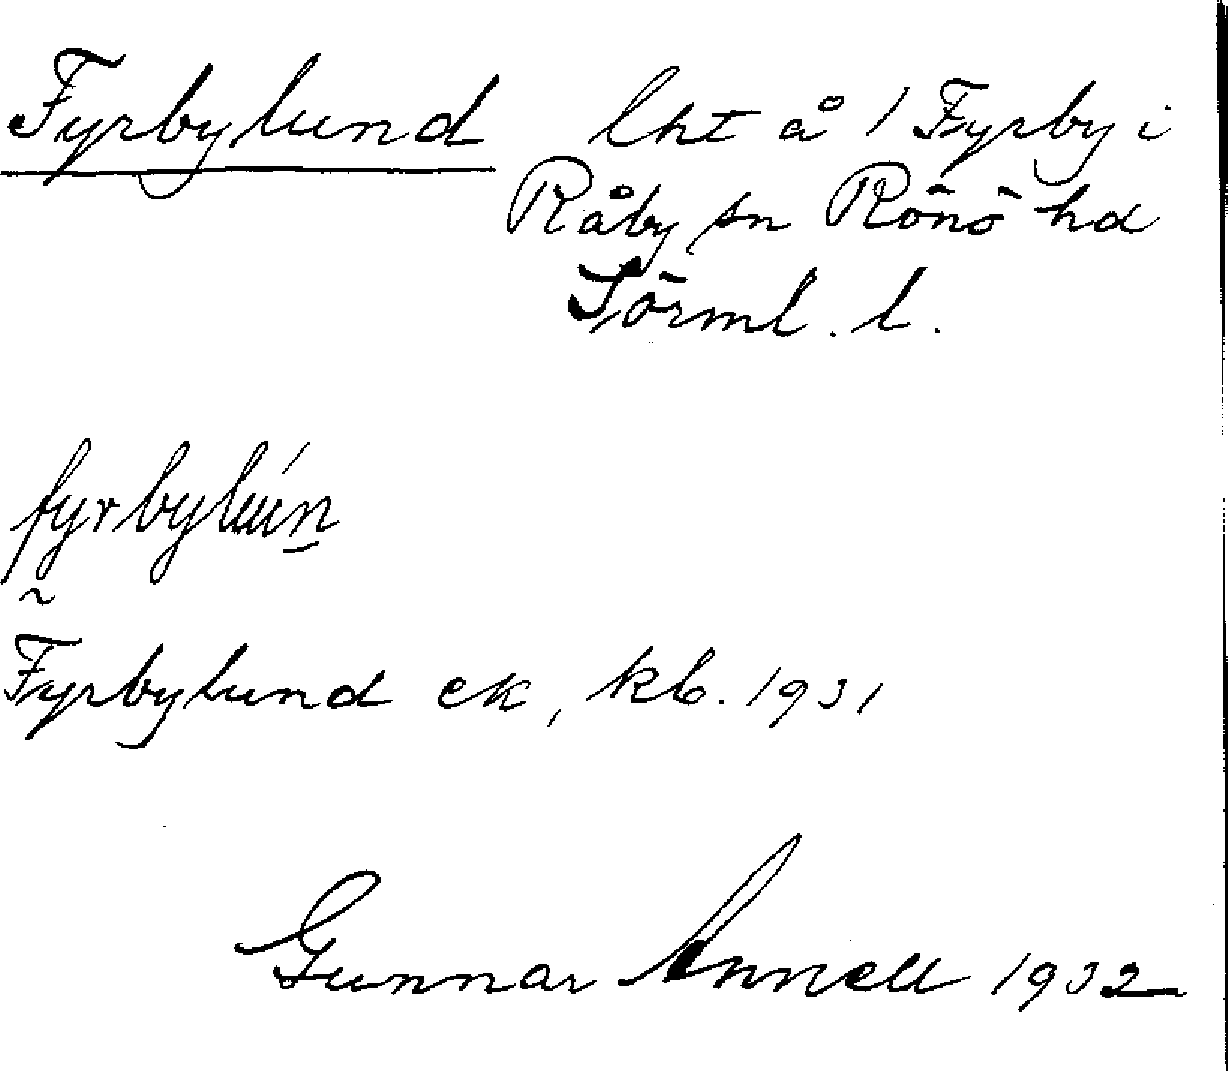 Fyrbylund lht å 1 Fyrby i
Råby sn Rönö hd
Sörml. l.
fyrbylún
~
Fyrbylund ek, kb. 1931
Gunnar Annell 1932